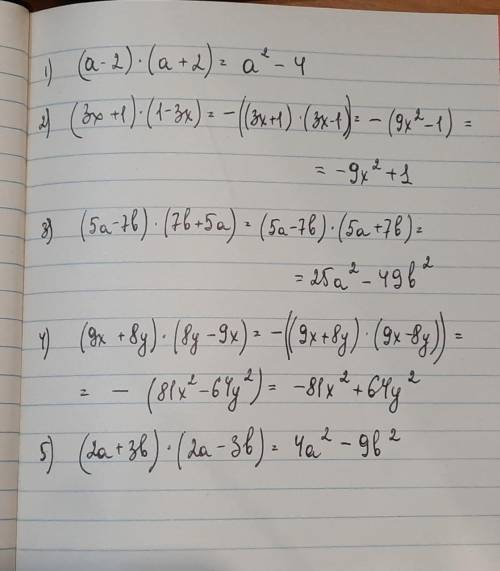 1) (a-2)·(a+2) = a² - 4
2) (3x+1)·(1-3x) = -((3x+1)·(3x-1)) = -(9x²-1) =
= -9x² + 1
3) (5a-7b)·(7b+5a) = (5a-7b)·(5a+7b) =
= 25a² - 49b²
4) (9x + 8y)·(8y - 9x) = -((9x+8y)·(9x-8y)) =
= - (81x² - 64y²) = -81x² + 64y²
5) (2a+3b)·(2a-3b) = 4a² - 9b²